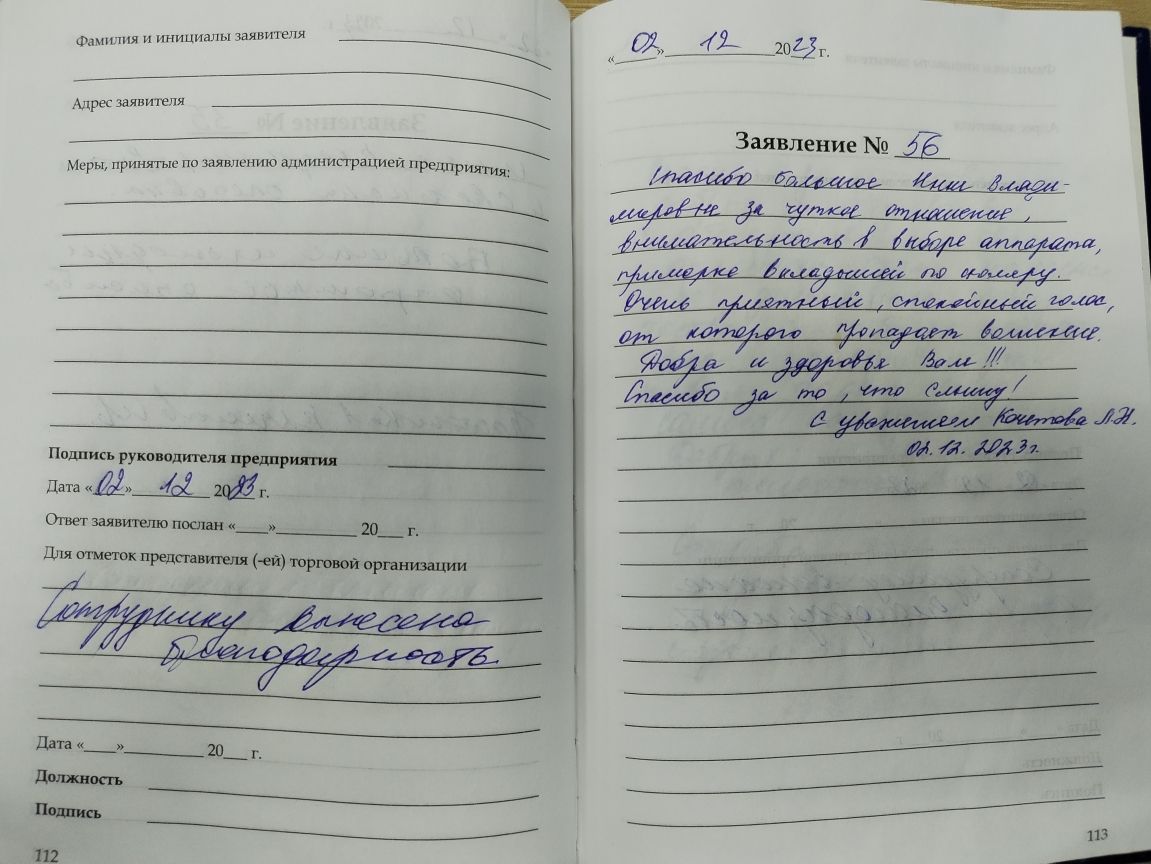 Фамилия и инициалы заявителя
Адрес заявителя
Меры, принятые по заявлению администрацией предприятия:
Подпись руководителя предприятия
Дата «02» 12 2023 г.
Ответ заявителю послан «____»____________ 20___ г.
Для отметок представителя (-ей) торговой организации
Сотруднику вынесена
благодарность.
Дата «____»____________ 20___ г.
Должность
Подпись
112
«02» 12 2023 г.
Заявление № 56
Спасибо большое Нине Влади-
мировне за чуткое отношение,
внимательность в выборе аппарата,
примерке вкладышей по номеру.
Очень приятный, спокойный голос,
от которого пропадает волнение.
Добра и здоровья Вам!!!
Спасибо за то, что слышу!
С уважением Кочетова Л.Н.
02.12.2023г.
113